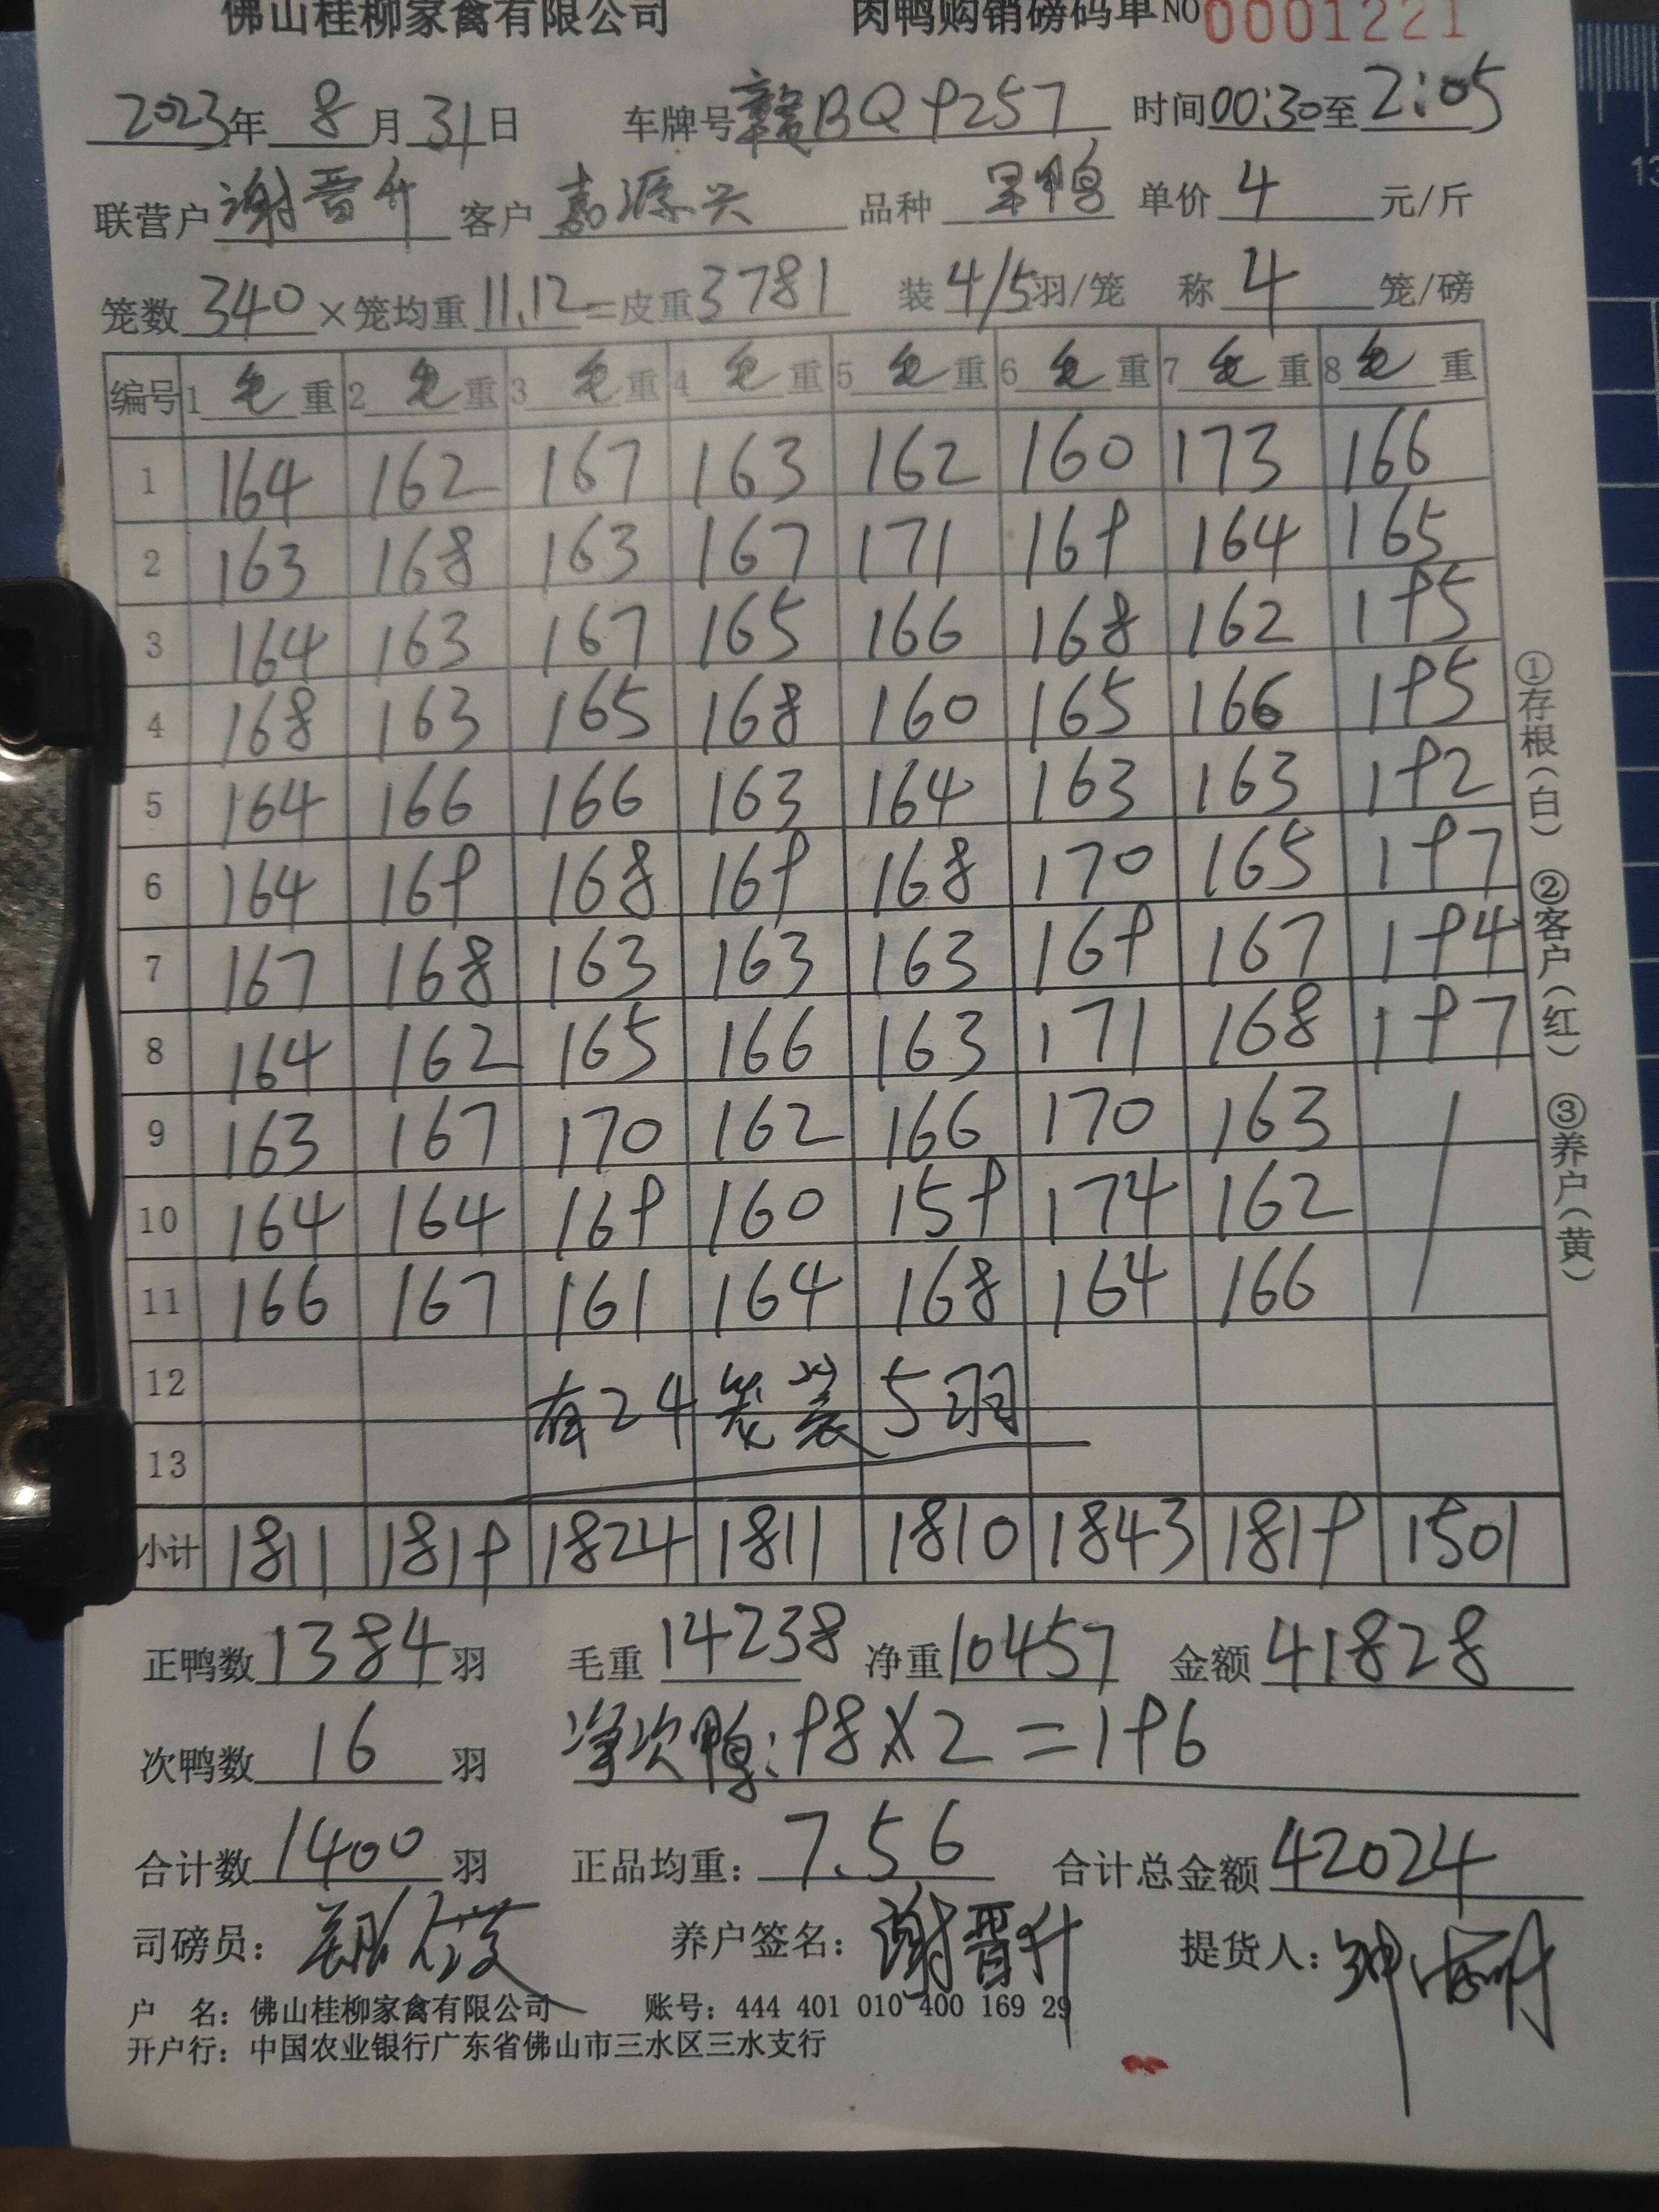 佛山桂柳家禽有限公司 肉鸭购销磅码单NO 0001221
2023年 8月31日 车牌号 赣BQ9257 时间00:30至2:05
联营户 谢晋升 客户 嘉源兴 品种 呈鸭 单价 4 元/斤
笼数 340 ×笼均重 11.12 =皮重 3781 装 4/5 羽/笼 称 4 笼/磅
编号 1毛重 2毛重 3毛重 4毛重 5毛重 6毛重 7毛重 8毛重
1 164 162 167 163 162 160 173 166
2 163 168 163 167 171 169 164 165
3 164 163 167 165 166 168 162 195
4 168 163 165 168 160 165 166 195
5 164 166 166 163 164 163 163 192
6 164 169 168 169 168 170 165 197
7 167 168 163 163 163 169 167 194
8 164 162 165 166 163 171 168 197
9 163 167 170 162 166 170 163
10 164 164 169 160 159 174 162
11 166 167 161 164 168 164 166
12 有24笼装5羽
13
小计 1811 1819 1824 1811 1810 1843 1819 1501
正鸭数 1384 羽 毛重 14238 净重 10457 金额 41828
次鸭数 16 羽 净次鸭:98×2=196
合计数 1400 羽 正品均重: 7.56 合计总金额 42024
司磅员: 养户签名: 谢晋升 提货人:
户 名: 佛山桂柳家禽有限公司 账号: 444 401 010 400 169 29
开户行: 中国农业银行广东省佛山市三水区三水支行
①存根(白) ②客户(红) ③养户(黄)
13